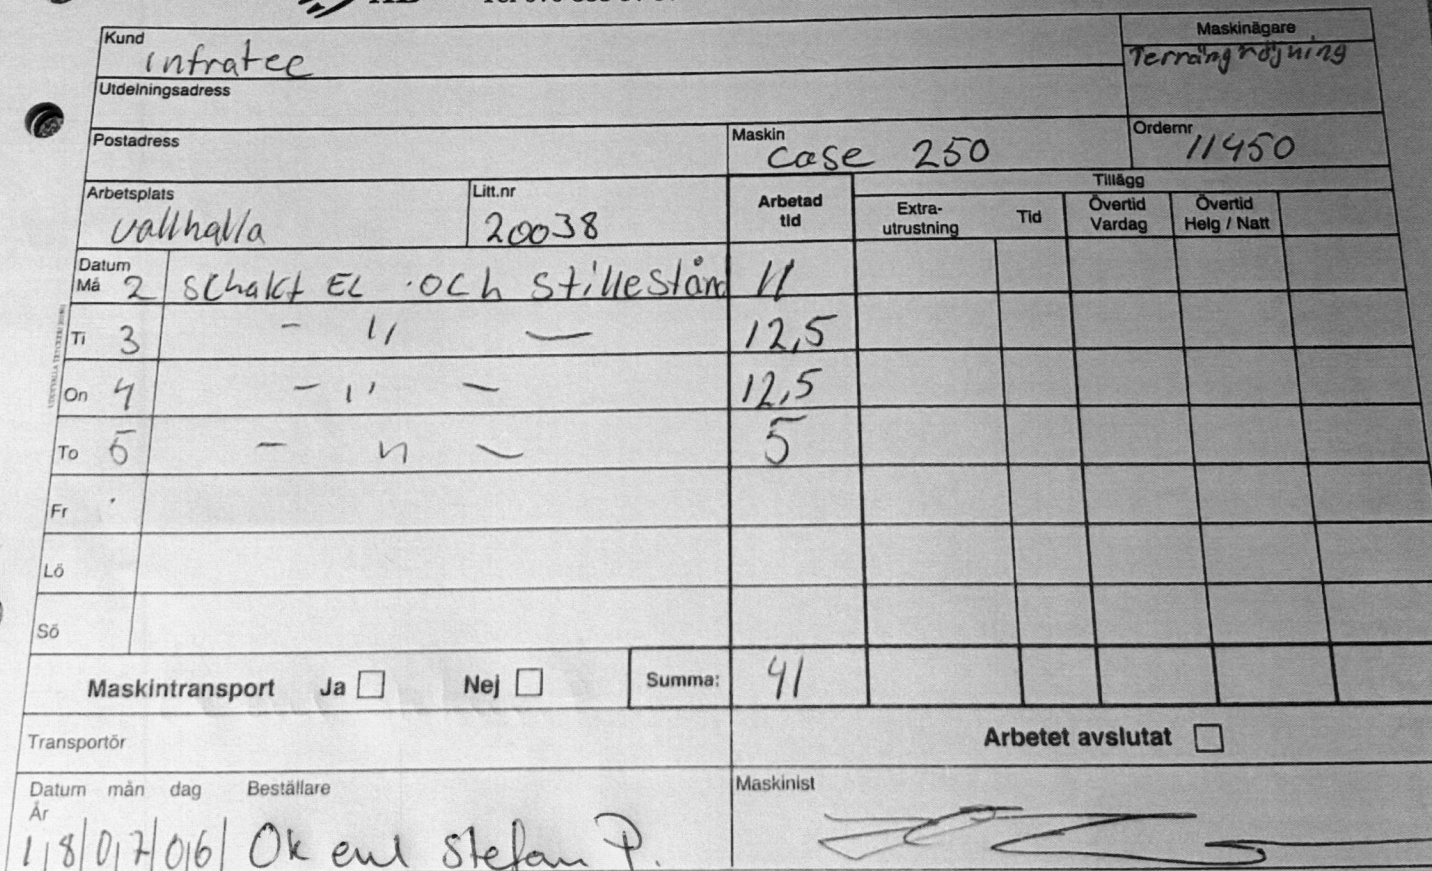 Kund
infratec
Maskinägare
Terrängröjning
Utdelningsadress
Postadress
Maskin
case 250
Ordernr
11450
Arbetsplats
vallhalla
Litt.nr
20038
Arbetad
tid
Tillägg
Extra-
utrustning
Tid
Övertid
Vardag
Övertid
Helg / Natt
Datum
Må 2 schakt EL och stillestånd 11
Ti 3 - " - 12,5
On 4 - " - 12,5
To 5 - " - 5
Fr
Lö
Sö
Maskintransport Ja Nej Summa: 41
Transportör
Arbetet avslutat
Datum mån dag Beställare
År
Maskinist
18/07/06 Ok enl Stefan P.